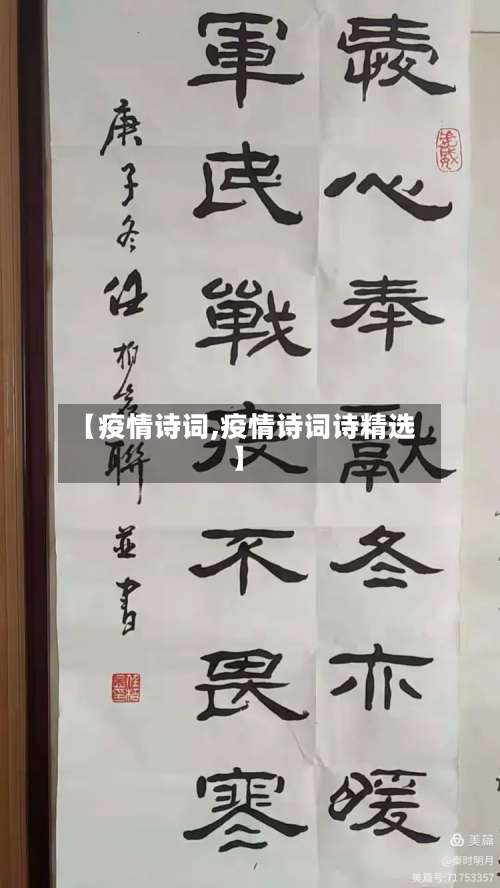 爱心奉献冬亦暖
軍民戰疫不畏寒
庚子冬任柏
聯並書
【疫情诗词,疫情诗词诗精选
】
美篇
@秦时明月
美篇号:71753357